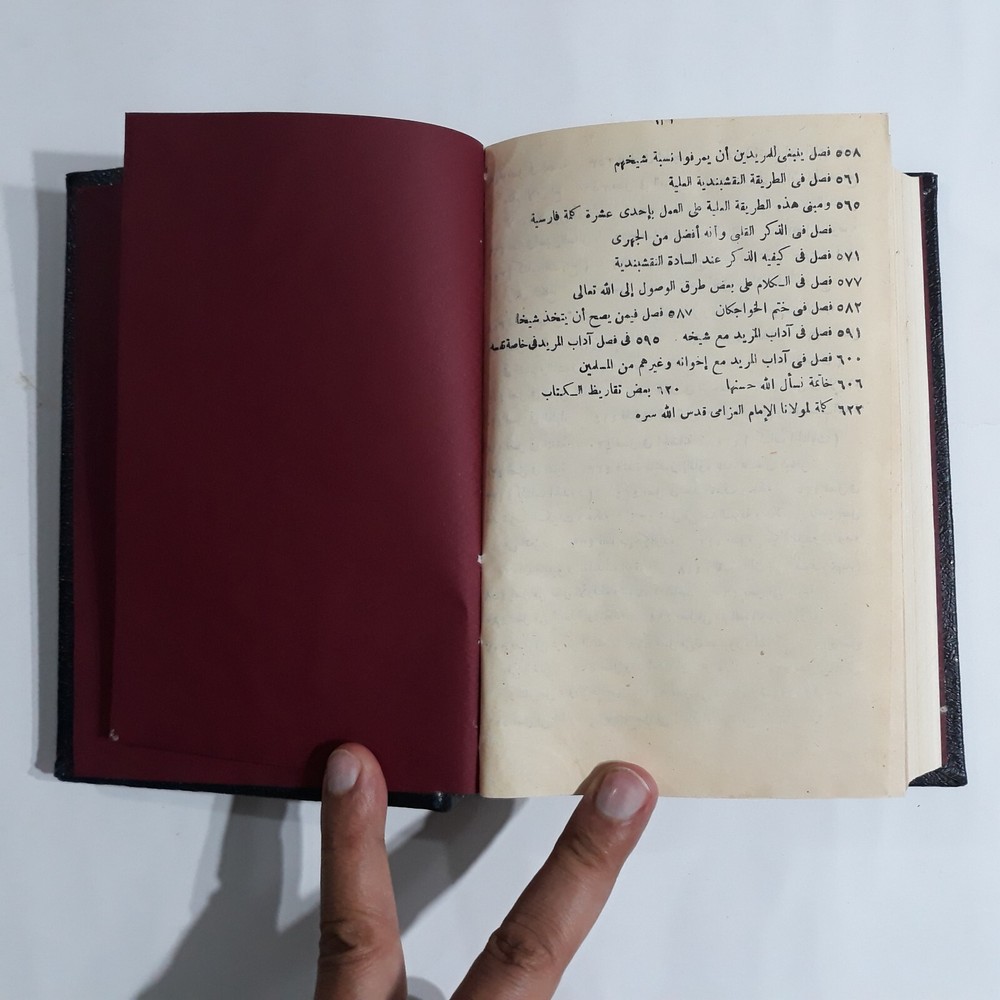 ٥٥٨ فصل ينبغى للمريدين أن يعرفوا نسبة شيخهم
٥٦١ فصل فى الطريقة النقشبندية العلية
٥٦٥ ومبنى هذه الطريقة العلية على العمل بإحدى عشرة كلمة فارسية
فصل فى الذكر القلبى وأنه أفضل من الجهرى
٥٧١ فصل فى كيفيه الذكر عند السادة النقشبندية
٥٧٧ فصل فى الكلام على بعض طرق الوصول إلى الله تعالى
٥٨٢ فصل فى ختم الخواجكان ٥٨٧ فصل فيمن يصح أن يتخذ شيخا
٥٩١ فصل فى آداب المريد مع شيخه ٥٩٥ فى فصل آداب المريد فى خاصة نفسه
٦٠٠ فصل فى آداب المريد مع إخوانه وغيرهم من المسلمين
٦٠٦ خاتمة نسأل الله حسنها ٦٢٠ بعض تقاريظ الكتاب
٦٢٢ كلمة لمولانا الإمام العزامى قدس الله سره